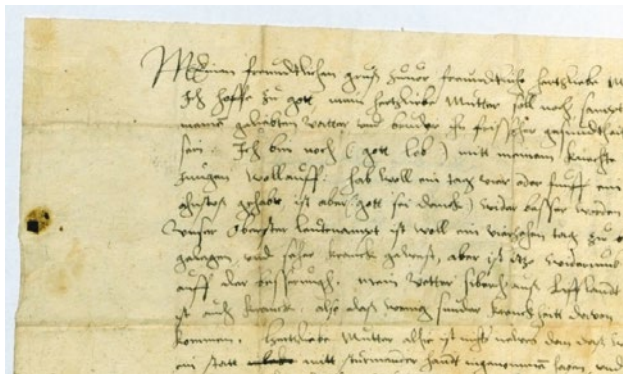 Meinen freundtlichen gruß zuuor freundtliche hertzliebe M
Ich hoffe zu gott mein hertzliebe Mutter soll noch sampt
meine geliebten vatter vnd bruder In frischer gesundtheit
sein. Ich bin noch (gott lob) mitt meinem knechte
Jungen wollauff: hab woll ein tag vier oder funff ein
anstos gehabt, ist aber (gott sei danck) wider besser worden
Vnser Oberster leutenampt ist woll ein vierzehen tag zu
gelegen vnd seher kranck gewest, aber ist itzo widerumb
auff der besserungh. Mein vetter aus Leifflandt
ist auch kranck. also das wenig sunder kranckheitt dauon
kommen. Hertzliebe Mutter alhie ist nichts neues dan das
ein statt mitt sturmender handt ingenommen haben vnd